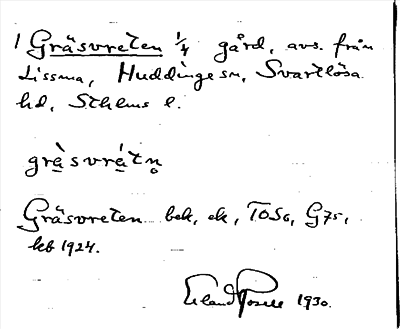 1 Gräsvreten 1/4 gård, avs. från
Lissma, Huddinge sn, Svartlösa
hd, Sthlms l.
grä̀svrä́tn̥
Gräsvreten bek, ek, TOSG, G75,
kb 1924.
Erland Rosell 1930.